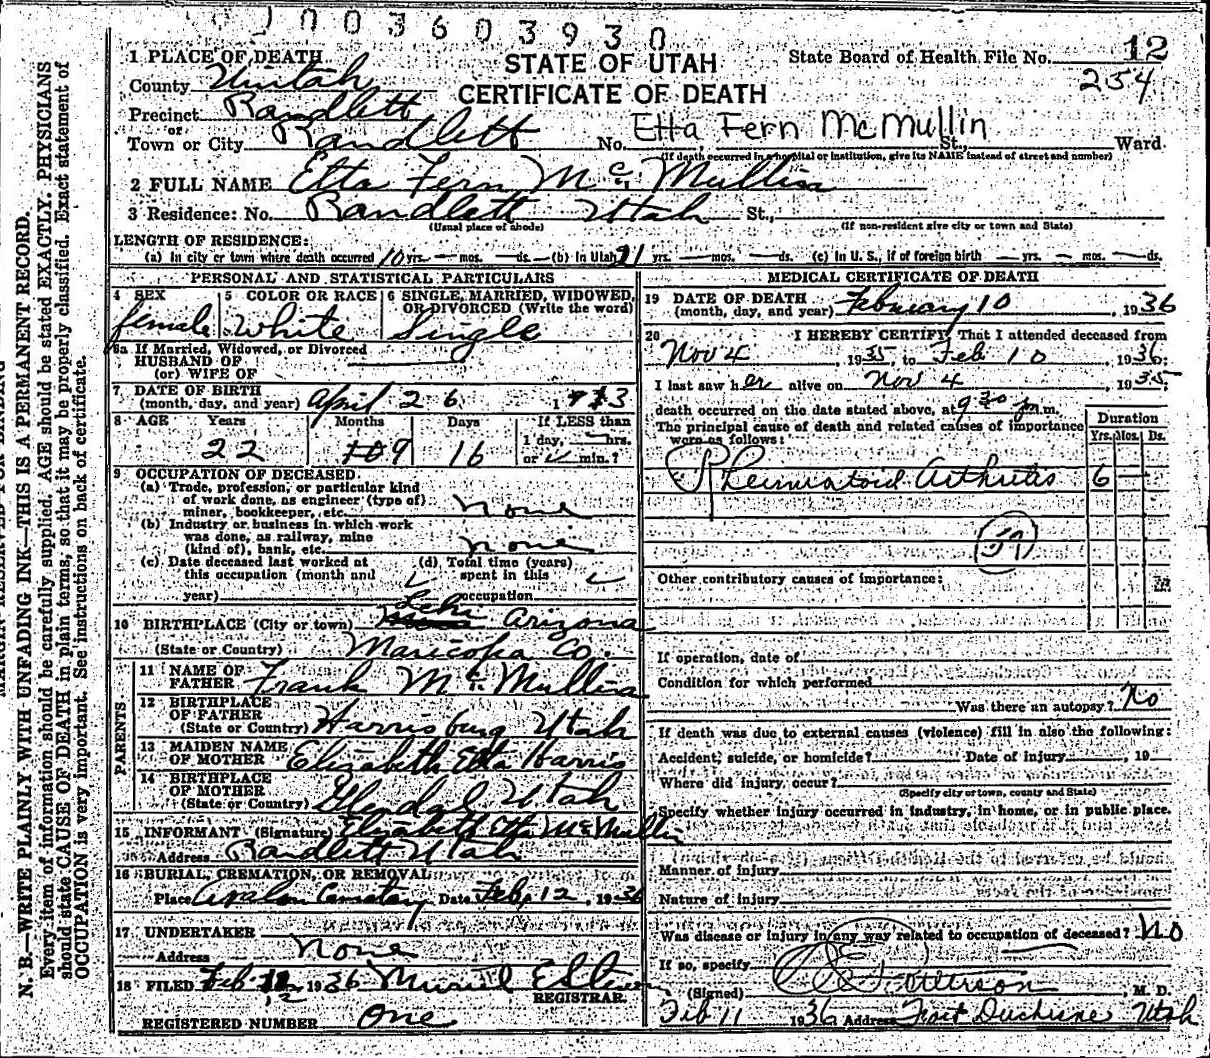 0 1 0 0 3 6 0 3 9 3 0
12
254
STATE OF UTAH
CERTIFICATE OF DEATH
State Board of Health File No.
1 PLACE OF DEATH
County Uintah
Precinct Randlett
or
Town or City Randlett No. Etta Fern McMullin St., Ward
(If death occurred in a hospital or institution, give its NAME instead of street and number)
2 FULL NAME Etta Fern Mc Mullin
3 Residence: No. Randlett Utah St.,
(Usual place of abode) (If non-resident give city or town and State)
LENGTH OF RESIDENCE:
(a) In city or town where death occurred 10 yrs. — mos. — ds. — (b) In Utah 21 yrs. — mos. — ds. (c) In U. S., if of foreign birth — yrs. — mos. — ds.
PERSONAL AND STATISTICAL PARTICULARS
4 SEX female
5 COLOR OR RACE White
6 SINGLE, MARRIED, WIDOWED, OR DIVORCED (Write the word) Single
6a If Married, Widowed, or Divorced
HUSBAND OF
(or) WIFE OF
7 DATE OF BIRTH
(month, day, and year) April 26 1913
8 AGE Years Months Days If LESS than
22 9 16 1 day, hrs.
or min.?
9 OCCUPATION OF DECEASED
(a) Trade, profession, or particular kind
of work done, as engineer (type of)
miner, bookkeeper, etc. none
(b) Industry or business in which work
was done, as railway, mine
(kind of), bank, etc. none
(c) Date deceased last worked at
this occupation (month and
year)
(d) Total time (years)
spent in this
occupation
10 BIRTHPLACE (City or town) Lehi Arizona
(State or Country) Maricopa Co.
PARENTS
11 NAME OF
FATHER Frank Mc Mullin
12 BIRTHPLACE
OF FATHER
(State or Country) Harrisburg Utah
13 MAIDEN NAME
OF MOTHER Elizabeth Etta Harris
14 BIRTHPLACE
OF MOTHER
(State or Country) Glendale Utah
15 INFORMANT (Signature) Elizabeth Etta McMullin
Address Randlett Utah
16 BURIAL, CREMATION, OR REMOVAL
Place Avalon Cemetary Date Feb 12, 1936
17 UNDERTAKER
Address None
18 FILED Feb 12 1936 Muriel
REGISTRAR.
REGISTERED NUMBER One
MEDICAL CERTIFICATE OF DEATH
19 DATE OF DEATH
(month, day, and year) February 10, 1936
20 I HEREBY CERTIFY, That I attended deceased from
Nov 4, 1935 to Feb 10, 1936;
I last saw her alive on Nov 4, 1935;
death occurred on the date stated above, at 9 30 p.m.
The principal cause of death and related causes of importance
were as follows:
Duration
Yrs. Mos. Ds.
Rheumatoid Arthritis 6 —
59
Other contributory causes of importance:
If operation, date of
Condition for which performed
Was there an autopsy? No
If death was due to external causes (violence) fill in also the following:
Accident, suicide, or homicide? Date of injury , 19
Where did injury occur?
(Specify city or town, county and State)
Specify whether injury occurred in industry, in home, or in public place.
Manner of injury
Nature of injury
Was disease or injury in any way related to occupation of deceased? No
If so, specify
(Signed) , M. D.
Feb 11 1936 Address Fort Duchesne Utah
MARGIN RESERVED FOR BINDING
N. B.—WRITE PLAINLY WITH UNFADING INK—THIS IS A PERMANENT RECORD.
Every item of information should be carefully supplied. AGE should be stated EXACTLY. PHYSICIANS
should state CAUSE OF DEATH in plain terms, so that it may be properly classified. Exact statement of
OCCUPATION is very important. See instructions on back of certificate.